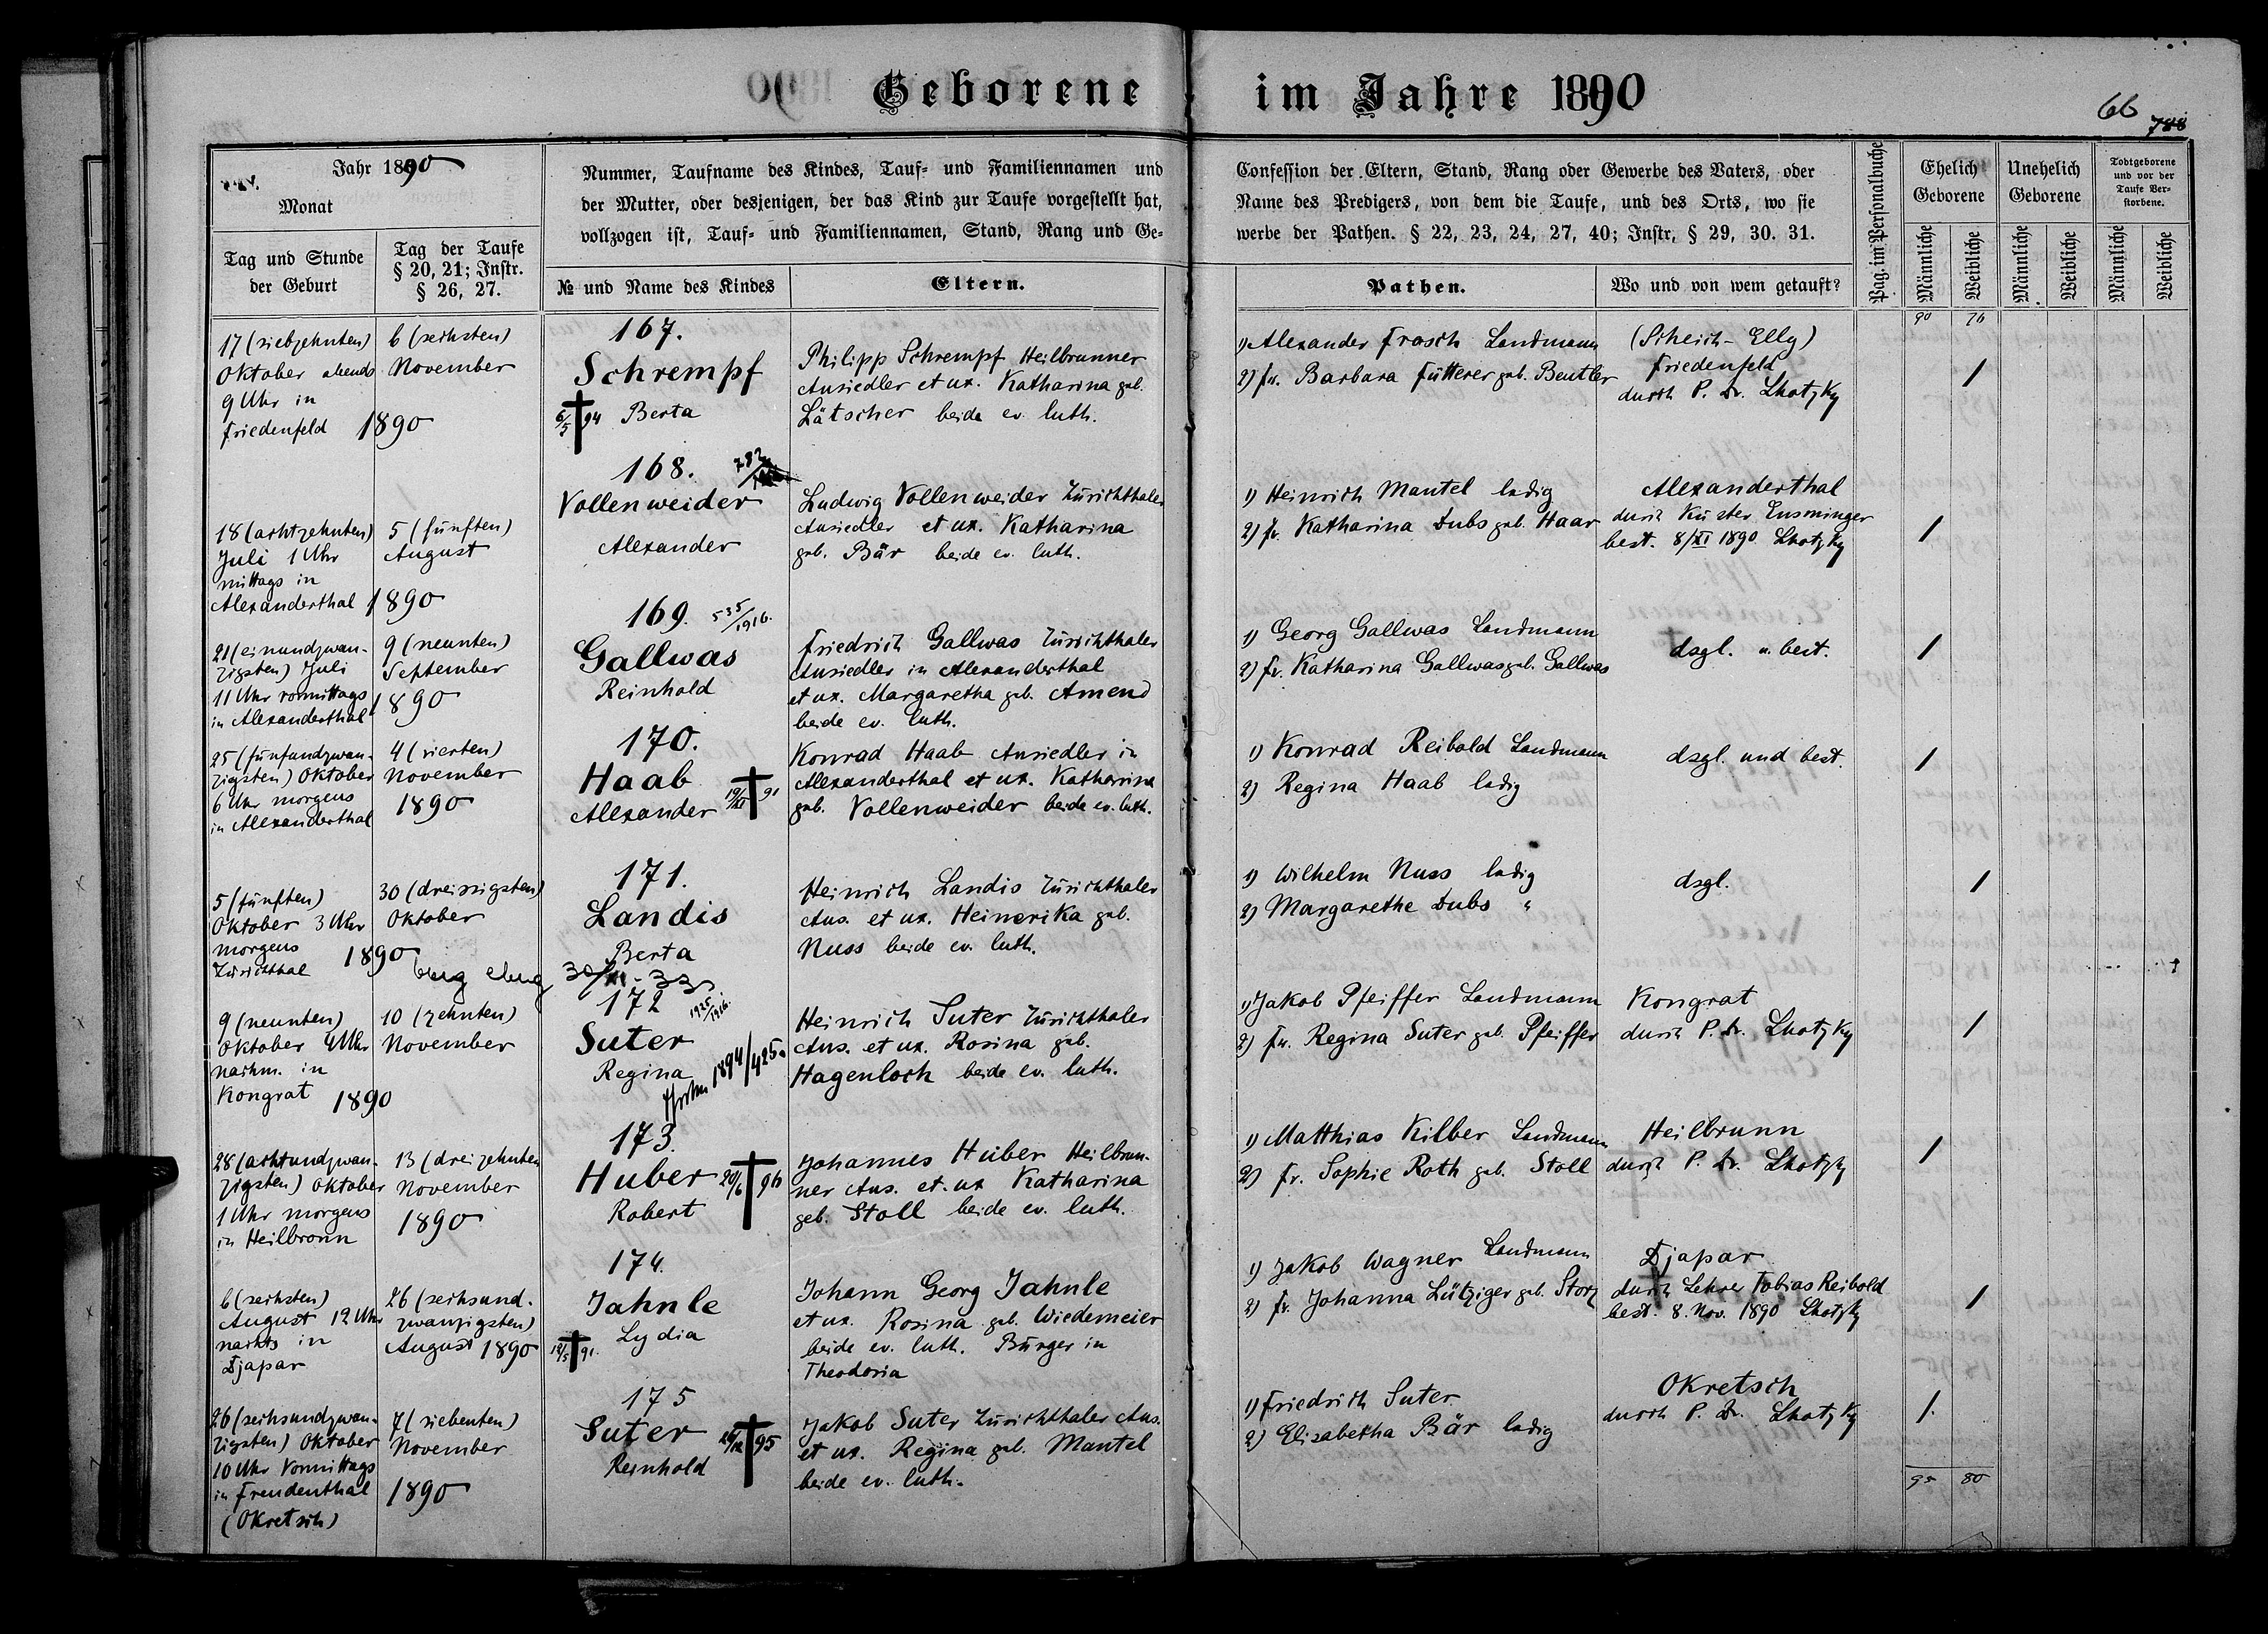 Geborene im Jahre 1890
66
788
Jahr 1890
Monat
Tag und Stunde
der Geburt
Tag der Taufe
§ 20, 21; Instr.
§ 26, 27.
Nummer, Taufname des Kindes, Tauf= und Familiennamen und
der Mutter, oder desjenigen, der das Kind zur Taufe vorgestellt hat,
vollzogen ist, Tauf= und Familiennamen, Stand, Rang und Ge=
№ und Name des Kindes
Eltern.
Confession der Eltern, Stand, Rang oder Gewerbe des Vaters, oder
Name des Predigers, von dem die Taufe, und des Orts, wo sie
werbe der Pathen. § 22, 23, 24, 27, 40; Instr, § 29, 30. 31.
Pathen.
Wo und von wem getauft?
Pag. im Personalbuche
Ehelich
Geborene
Unehelich
Geborene
Todtgeborene
und vor der
Taufe Ver=
storbene.
Männliche
Weibliche
Männliche
Weibliche
Männliche
Weibliche
90 76
17 (siebzehnten)
Oktober abends
9 Uhr in
Friedenfeld
6 (sechsten)
November
1890
167.
Schrempf
6/5 † 94 Berta
Philipp Schrempf Heilbrunner
Ansiedler et ux. Katharina geb.
Lätscher beide ev. luth.
1) Alexander Frasch Landmann
2) Fr. Barbara Fütterer geb. Beutler
(Scheich-Elly)
Friedenfeld
durch P. Dr. Lhotzky
/
18 (achtzehnten)
Juli 1 Uhr
mittags in
Alexanderthal
5 (fünften)
August
1890
168.
782
Vollenweider
Alexander
Ludwig Vollenweider Zürichthaler
Ansiedler et ux. Katharina
geb. Bär beide ev. luth.
1) Heinrich Mantel ledig
2) Fr. Katharina Dubs geb. Haar
Alexanderthal
durch Küster Ensminger
best. 8/XI 1890 Lhotzky
/
21 (einundzwan-
zigsten) Juli
11 Uhr vormittags
in Alexanderthal
9 (neunten)
September
1890
169. 535/1916.
Gallwas
Reinhold
Friedrich Gallwas Zürichthaler
Ansiedler in Alexanderthal
et ux. Margaretha geb. Amend
beide ev. luth.
1) Georg Gallwas Landmann
2) Fr. Katharina Gallwas geb. Gallwas
dsgl. u. best.
/
25 (fünfundzwan-
zigsten) Oktober
6 Uhr morgens
in Alexanderthal
4 (vierten)
November
1890
170.
Haab
Alexander † 91
Konrad Haab Ansiedler in
Alexanderthal et ux. Katharina
geb. Vollenweider beide ev. luth.
1) Konrad Reibold Landmann
2) Regina Haab ledig
dsgl. und best.
/
5 (fünften)
Oktober 3 Uhr
morgens
Zürichthal
30 (dreissigsten)
Oktober
1890
171.
Landis
Berta
Heinrich Landis Zürichthaler
Ans. et ux. Heinerika geb.
Nuss beide ev. luth.
1) Wilhelm Nuss ledig
2) Margarethe Dubs "
dsgl.
/
9 (neunten)
Oktober 4 Uhr
nachm. in
Kongrat
10 (zehnten)
November
1890
172
1925/1916.
Suter
Regina
1894/425.
Heinrich Suter Zürichthaler
Ans. et ux. Rosina geb.
Hagenloch beide ev. luth.
1) Jakob Pfeiffer Landmann
2) Fr. Regina Suter geb. Pfeiffer
Kongrat
durch P. Dr. Lhotzky
/
28 (achtundzwan-
zigsten) Oktober
1 Uhr morgens
in Heilbronn
13 (dreizehnten
November
1890
173.
Huber 20/6 † 96
Robert
Johannes Huber Heilbrun-
ner Ans. et. ux Katharina
geb. Stoll beide ev. luth.
1) Matthias Kilber Landmann
2) Fr. Sophie Roth geb. Stoll
Heilbrunn
durch P. Dr. Lhotzky
/
6 (sechsten)
August 12 Uhr
nachts in
Djapar
26 (sechsund-
zwanzigsten)
August 1890
174.
Jahnle
Lydia
† 91.
Johann Georg Jahnle
et ux. Rosina geb. Wiedemeier
beide ev. luth. Bürger in
Theodoria
1) Jakob Wagner Landmann
2) Fr. Johanna Lütziger geb. Storz
Djapar
durch Lehrer Tobias Reibold
best. 8. Nov. 1890 Lhotzky
/
26 (sechsundzwan-
zigsten) Oktober
10 Uhr Vormittags
in Freudenthal
(Okretsch)
7 (siebenten)
November
1890
175
Suter † 95
Reinhold
Jakob Suter Zürichthaler Ans.
et ux. Regina geb. Mantel
beide ev. luth.
1) Friedrich Suter
2) Elisabetha Bär ledig
Okretsch
durch P. Dr. Lhotzky
/.
95 80